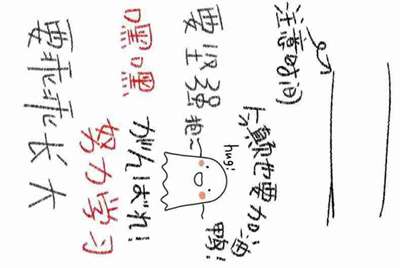 注意时间
也要加油
鸭!
hug!
要坚强 抱~
嘿嘿 がんばれ!
努力学习
要乖乖长大